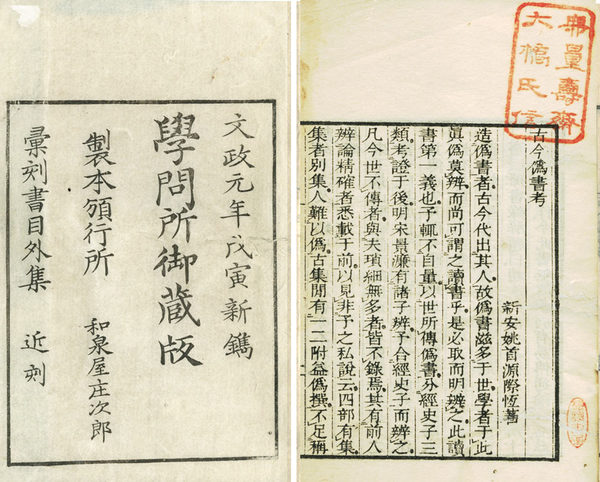 無量壽齋
大橋氏信
古今僞書考
新安姚首源際恆著
造僞書者古今代出其人故僞書滋多于世學者于此
眞僞莫辨而尚可謂之讀書乎是必取而明辨之此讀
書第一義也予輒不自量以世所傳僞書分經史子三
類考證于後明宋景濂有諸子辨予合經史子而辨之
凡今世不傳者與夫瑣細無多者皆不錄焉其有前人
辨論精確者悉載于前以見非予之私說云四部有集
集者別集人難以僞古集閒有一二附益僞撰不足稱
文政元年戊寅新鐫
學問所御藏版
製本頒行所 和泉屋庄次郎
彙刻書目外集 近刻